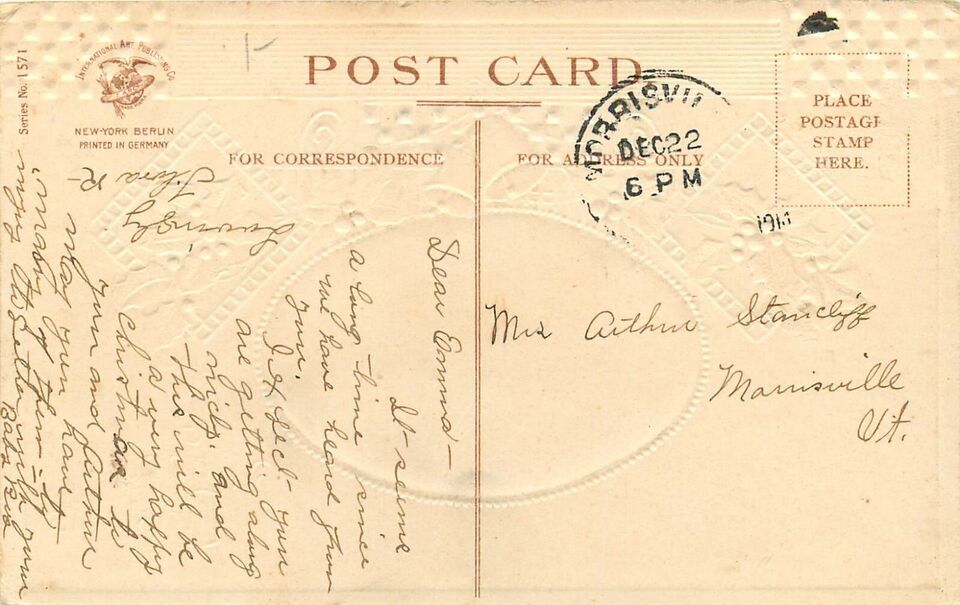 POST CARD
INTERNATIONAL ART PUBLISHING Co.
NEW-YORK BERLIN
PRINTED IN GERMANY
Series No. 1571
FOR CORRESPONDENCE
FOR ADDRESS ONLY
PLACE
POSTAGE
STAMP
HERE.
MORRISVIL
DEC 22
6 PM
191
Mrs Arthur Stancliff
Morrisville
Vt.
Dear Emma-
It seems
a long time since
we have heard from
you.
I expect you
are getting along
nicly. and
This will be
a very happy
Christmas to
you and Arthur
May you have
many of them -
enjoy altogether with your
Lovingly
Flora R-